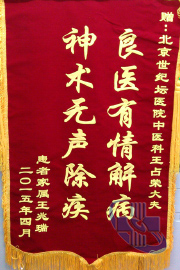 赠：北京世纪坛医院中医科王占荣大夫
良医有情解病
神术无声除疾
患者家属王兆瑞
二〇一五年四月